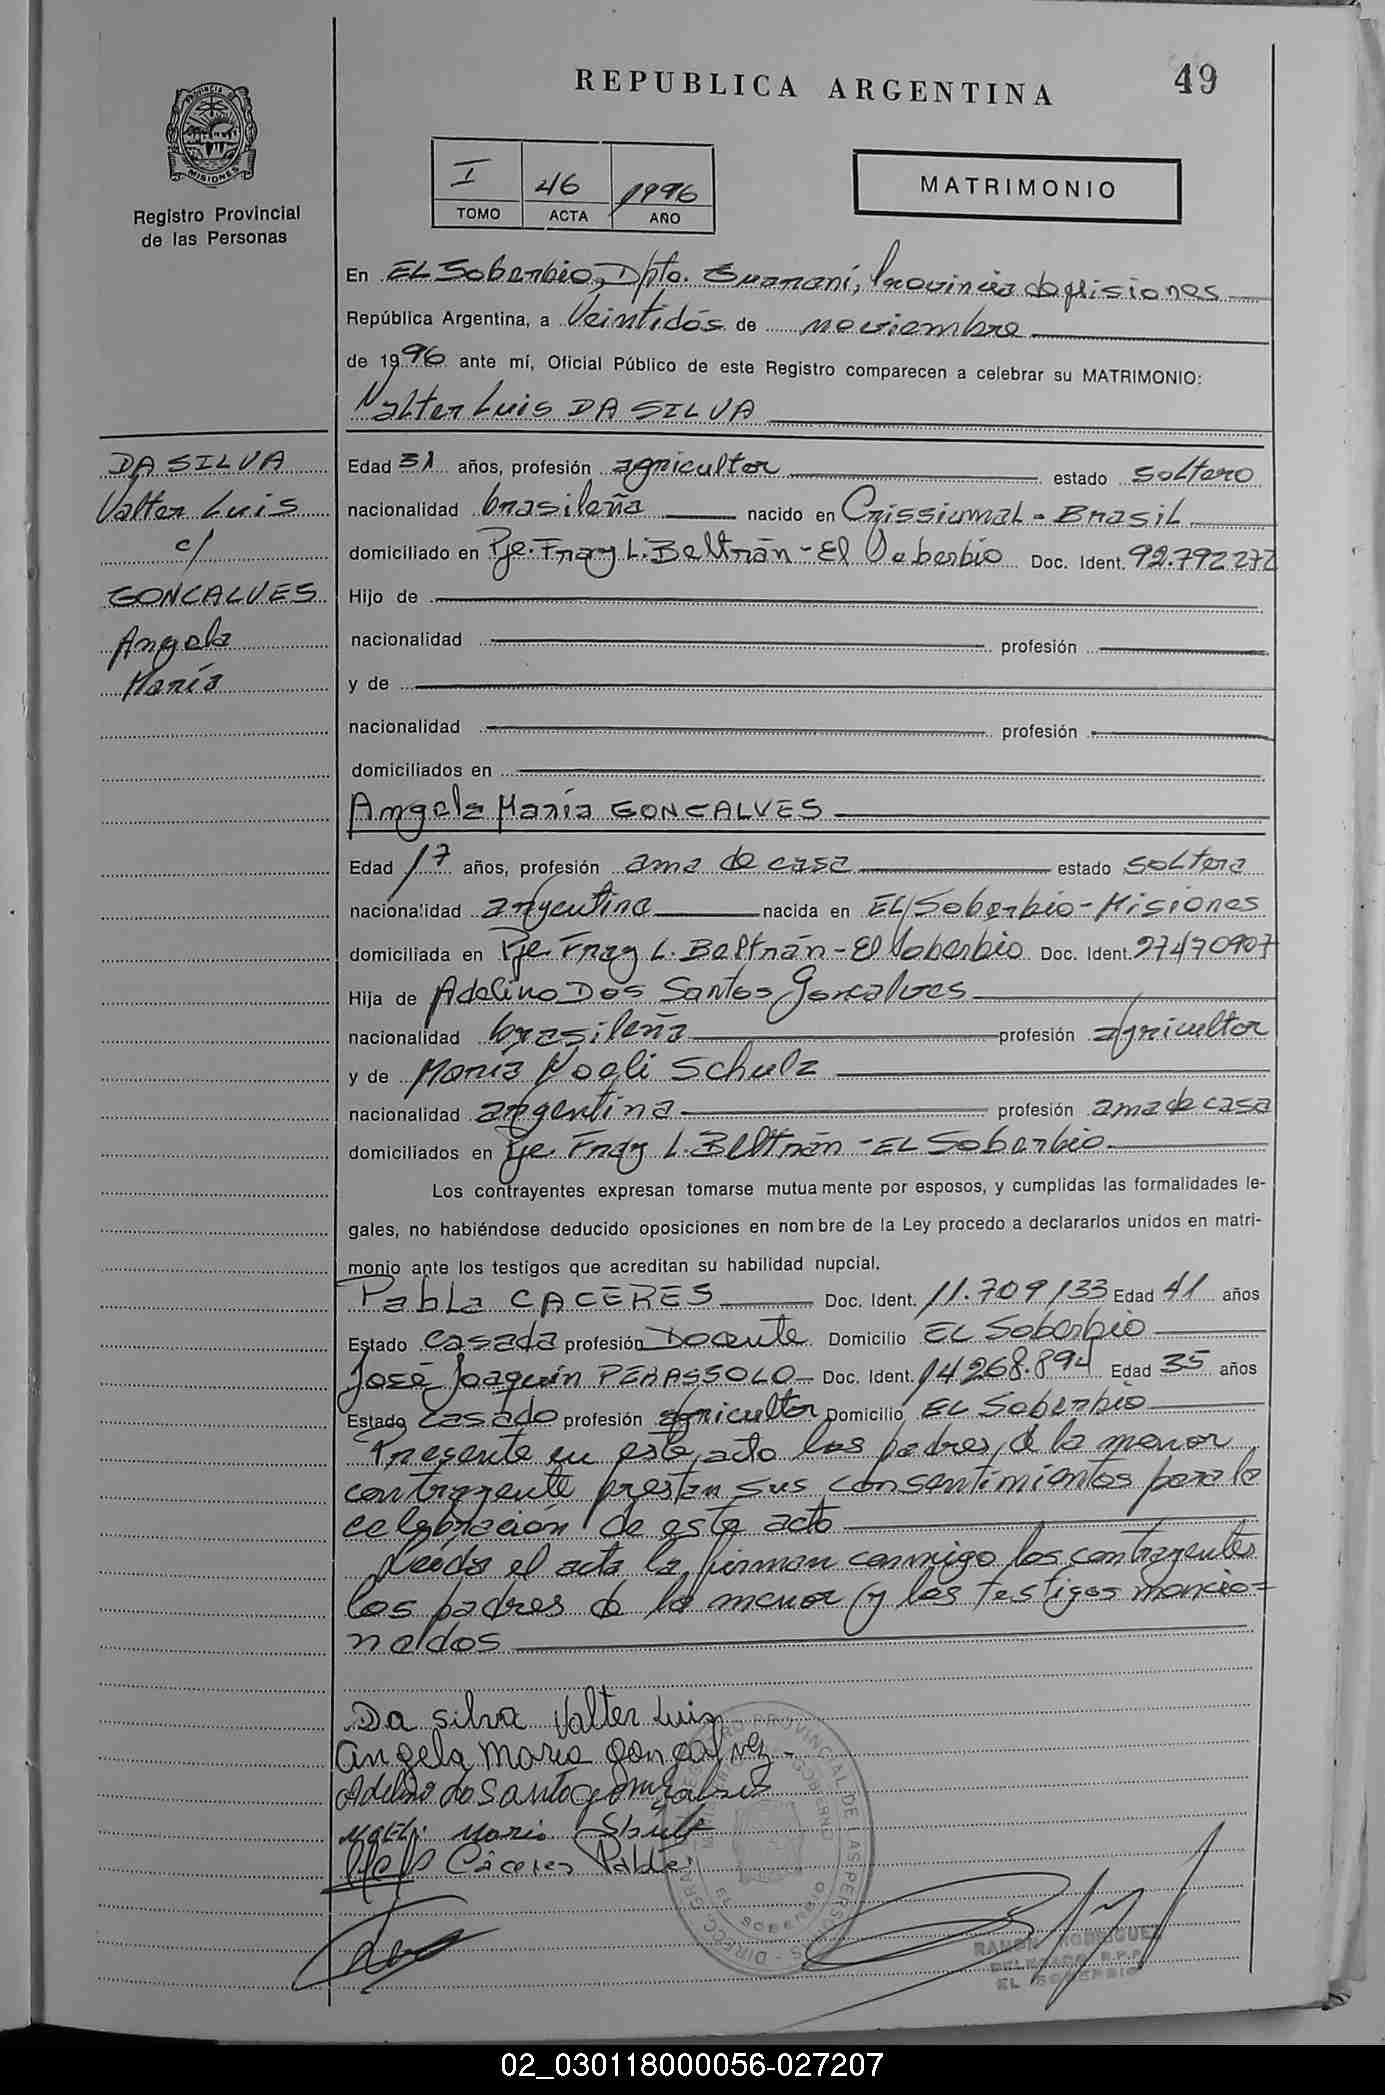 REPUBLICA ARGENTINA
49
PROVINCIA DE MISIONES
Registro Provincial
de las Personas
I 46 1996
TOMO ACTA AÑO
MATRIMONIO
En EL Soberbio, Dpto. Guaraní, Provincia de Misiones
República Argentina, a Veintidós de noviembre
de 1996 ante mí, Oficial Público de este Registro comparecen a celebrar su MATRIMONIO:
Valter Luis DA SILVA
DA SILVA
Valter Luis
c/
GONCALVES
Angela
María
Edad 31 años, profesión agricultor estado soltero
nacionalidad brasileña nacido en Crissiumal - Brasil
domiciliado en Pje. Fray L. Beltrán - El Soberbio Doc. Ident. 92.792272
Hijo de
nacionalidad profesión
y de
nacionalidad profesión
domiciliados en
Angela María GONCALVES
Edad 17 años, profesión ama de casa estado soltera
nacionalidad argentina nacida en EL Soberbio - Misiones
domiciliada en Pje. Fray L. Beltrán - El Soberbio Doc. Ident. 27470907
Hija de Adelino Dos Santos Goncalves
nacionalidad brasileña profesión agricultor
y de María Nogli Schulz
nacionalidad argentina profesión ama de casa
domiciliados en Pje. Fray L. Beltrán - EL Soberbio
Los contrayentes expresan tomarse mutuamente por esposos, y cumplidas las formalidades le-
gales, no habiéndose deducido oposiciones en nombre de la Ley procedo a declararlos unidos en matri-
monio ante los testigos que acreditan su habilidad nupcial.
Pabla CACERES Doc. Ident. 11.709133 Edad 41 años
Estado casada profesión Docente Domicilio EL Soberbio
José Joaquín PERASSOLO Doc. Ident. 14268.894 Edad 35 años
Estado casado profesión agricultor Domicilio EL Soberbio
Presente en este acto los padres de la menor
contrayente prestan sus consentimientos para la
celebración de este acto
Leída el acta la firman conmigo los contrayentes
los padres de la menor y los testigos mencio=
nados
Da silva Valter Luis
angela maria gonçalvez
Adelino do Santo gonzalves
Caceres Pabla
EL SOBERBIO
RAMON RODRIGUEZ
DELEGADO R.P.P.
EL SOBERBIO
02_030118000056-027207